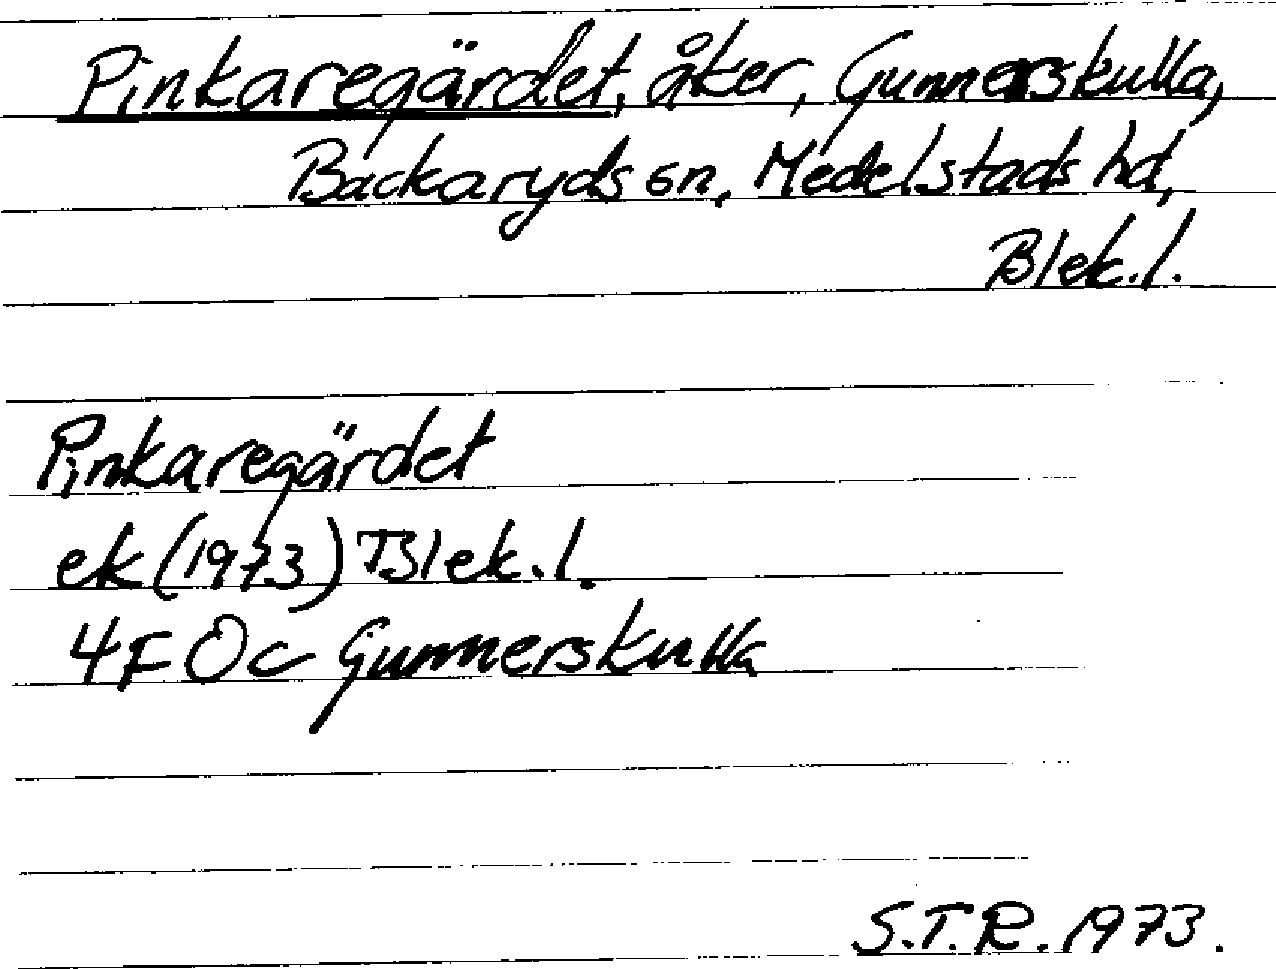 Pinkaregärdet, åker, Gunnerskulla,
Backaryds sn, Medelstads hd,
Blek.l.
Pinkaregärdet
ek (1973) Blek.l.
4F Oc Gunnerskulla
S.T.R. 1973.